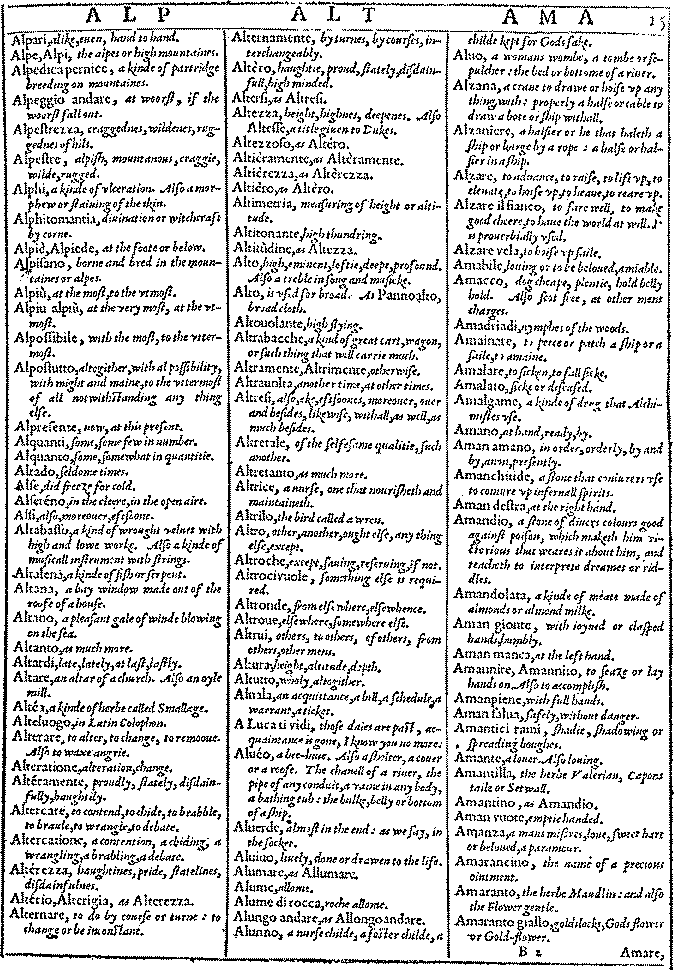 ALP ALT AMA 15
Alpari, alike, euen, hand to hand.
Alpe, Alpi, the alpes or high mountaines.
Alpedica pernice, a kinde of partridge
breeding on mountaines.
Alpeggio andare, at woorst, if the
woorst fall out.
Alpestrezza, craggednes, wildenes, rug-
gednes of hils.
Alpestre, alpish, mountanous, craggie,
wilde, rugged.
Alphi, a kinde of vlceration. Also a mor-
phew or staining of the skin.
Alphitomantia, diuination or witchcraft
by corne.
Alpiè, Alpiede, at the foote or below.
Alpisano, borne and bred in the moun-
taines or alpes.
Alpiù, at the most, to the vtmost.
Alpiu alpiù, at the very most, at the vt-
most.
Alpossibile, with the most, to the vtter-
most.
Alpostutto, altogither, with al possibility,
with might and maine, to the vttermost
of all notwithstanding any thing
else.
Alpresente, now, at this present.
Alquanti, some, some few in number.
Alquanto, some, somewhat in quantitie.
Alrado, seldome times.
Alse, did freeze for cold.
Alseréno, in the cleere, in the open aire.
Alsi, also, moreouer, eftsoone.
Altabasso, a kind of wrought veluet with
high and lowe worke. Also a kinde of
musicall instrument with strings.
Altalena, a kinde of fish or serpent.
Altana, a bay window made out of the
roofe of a house.
Altano, a pleasant gale of winde blowing
on the sea.
Altanto, as much more.
Altardi, late, lately, at last, lastly.
Altare, an altar of a church. Also an oyle
mill.
Altéa, a kinde of herbe called Smallage.
Alteluogo, in Latin Colophon.
Alterare, to alter, to change, to remooue.
Also to waxe angrie.
Alteratione, alteration, change.
Altéramente, proudly, stately, disdain-
fully, haughtily.
Altercare, to contend, to chide, to brabble,
to braule, to wrangle, to debate.
Altercatione, a contention, a chiding, a
wrangling, a brabling, a debate.
Altérezza, haughtines, pride, statelines,
disdainfulnes.
Altério, Alterigia, as Alterezza.
Alternare, to do by course or turne: to
change or be inconstant.
Alternamente, by turnes, by courses, in-
terchangeably.
Altèro, haughtie, proud, stately, disdain-
full, high minded.
Altersi, as Altresi.
Altezza, height, highnes, deepenes. Also
Altesse, a title giuen to Dukes.
Altezzoso, as Altéro.
Altiéramente, as Altèramente.
Altiérezza, as Altèrezza.
Altiéro, as Altèro.
Altimetria, measuring of height or alti-
tude.
Altitonante, high thundring.
Altitùdine, as Altezza.
Alto, high, eminent, loftie, deepe, profound.
Also a treble in song and musicke.
Alto, is vsed for broad. As Panno alto,
broad cloth.
Altouolante, high flying.
Altrabacche, a kinde of great cart, wagon,
or such thing that will carrie much.
Altramente, Altrimente, otherwise.
Altrauolta, another time, at other times.
Altresi, also, eke, eftsoones, moreouer, ouer
and besides, likewise, withall, as well, as
much besides.
Altretale, of the selfesame qualitie, such
another.
Altretanto, as much more.
Altrice, a nurse, one that nourisheth and
maintaineth.
Altrilo, the bird called a wren.
Altro, other, another, ought else, any thing
else, except.
Altroche, except, sauing, reseruing, if not.
Altrocivuole, something else is requi-
red.
Altronde, from else where, elsewhence.
Altroue, elsewhere, somewhere else.
Altrui, others, to others, of others, from
others, other mens.
Altura, height, altitude, depth.
Altutto, wholy, altogither.
Aluala, an acquittance, a bill, a schedule, a
warrant, a ticket.
A Luca ti vidi, those daies are past, ac-
quaintance is gone, I know you no more.
Aluéo, a bee-hiue. Also a shelter, a couer
or a roofe. The chanell of a riuer, the
pipe of any conduit, a vaine in any body,
a bathing tub: the bulke, belly or bottom
of a ship.
Aluerde, almost in the end: as we say, in
the socket.
Aluiuo, liuely, done or drawen to the life.
Alumare, as Allumare.
Alume, allome.
Alume di rocca, roche allome.
Alungo andare, as Allongo andare.
Alunno, a nurse childe, a foster childe, a
childe kept for Gods sake.
Aluo, a womans wombe, a tombe or se-
pulcher: the bed or bottome of a riuer.
Alzana, a crane to drawe or hoise vp any
thing with: properly a halse or cable to
draw a bote or ship withall.
Alzaniere, a halsier or he that haleth a
ship or barge by a rope: a halse or hal-
sier in a ship.
Alzare, to aduance, to raise, to lift vp, to
eleuate, to hoise vp, to heaue, to reare vp.
Alzare il fianco, to fare well, to make
good cheere, to haue the world at will. It
is prouerbially vsed.
Alzare vela, to hoise vp saile.
Amabile, louing or to be beloued, amiable.
Amacco, dog cheape, plentie, hold belly
hold. Also scot free, at other mens
charges.
Amadriadi, nymphes of the woods.
Amainare, to peece or patch a ship or a
saile, to amaine.
Amalare, to sicken, to fall sicke.
Amalato, sicke or diseased.
Amalgame, a kinde of drug that Alchi-
mistes vse.
Amano, at hand, ready, by.
Aman amano, in order, orderly, by and
by, anon, presently.
Amanchitide, a stone that coniurers vse
to coniure vp infernall spirits.
Aman destra, at the right hand.
Amandio, a stone of diuers colours good
against poison, which maketh him vi-
ctorious that weares it about him, and
teacheth to interprete dreames or rid-
dles.
Amandolata, a kinde of meate made of
almonds or almond milke.
Aman gionte, with ioyned or clasped
hands, humbly.
Aman manca, at the left hand.
Amanníre, Amannito, to seaze or lay
hands on. Also to accomplish.
Amanpiene, with full hands.
Aman salua, safely, without danger.
Amantici rami, shadie, shadowing or
spreading boughes.
Amante, a louer. Also louing.
Amantilla, the herbe Valerian, Capons
taile or Setwall.
Amantino, as Amandio.
Aman vuote, emptie handed.
Amanza, a mans mistres, loue, sweet hart
or beloued, a paramour.
Amarancino, the name of a precious
ointment.
Amaranto, the herbe Maudlin: and also
the Flower gentle.
Amaranto giallo, goldilocks, Gods flower
or Gold-flower.
B 2 Amare,